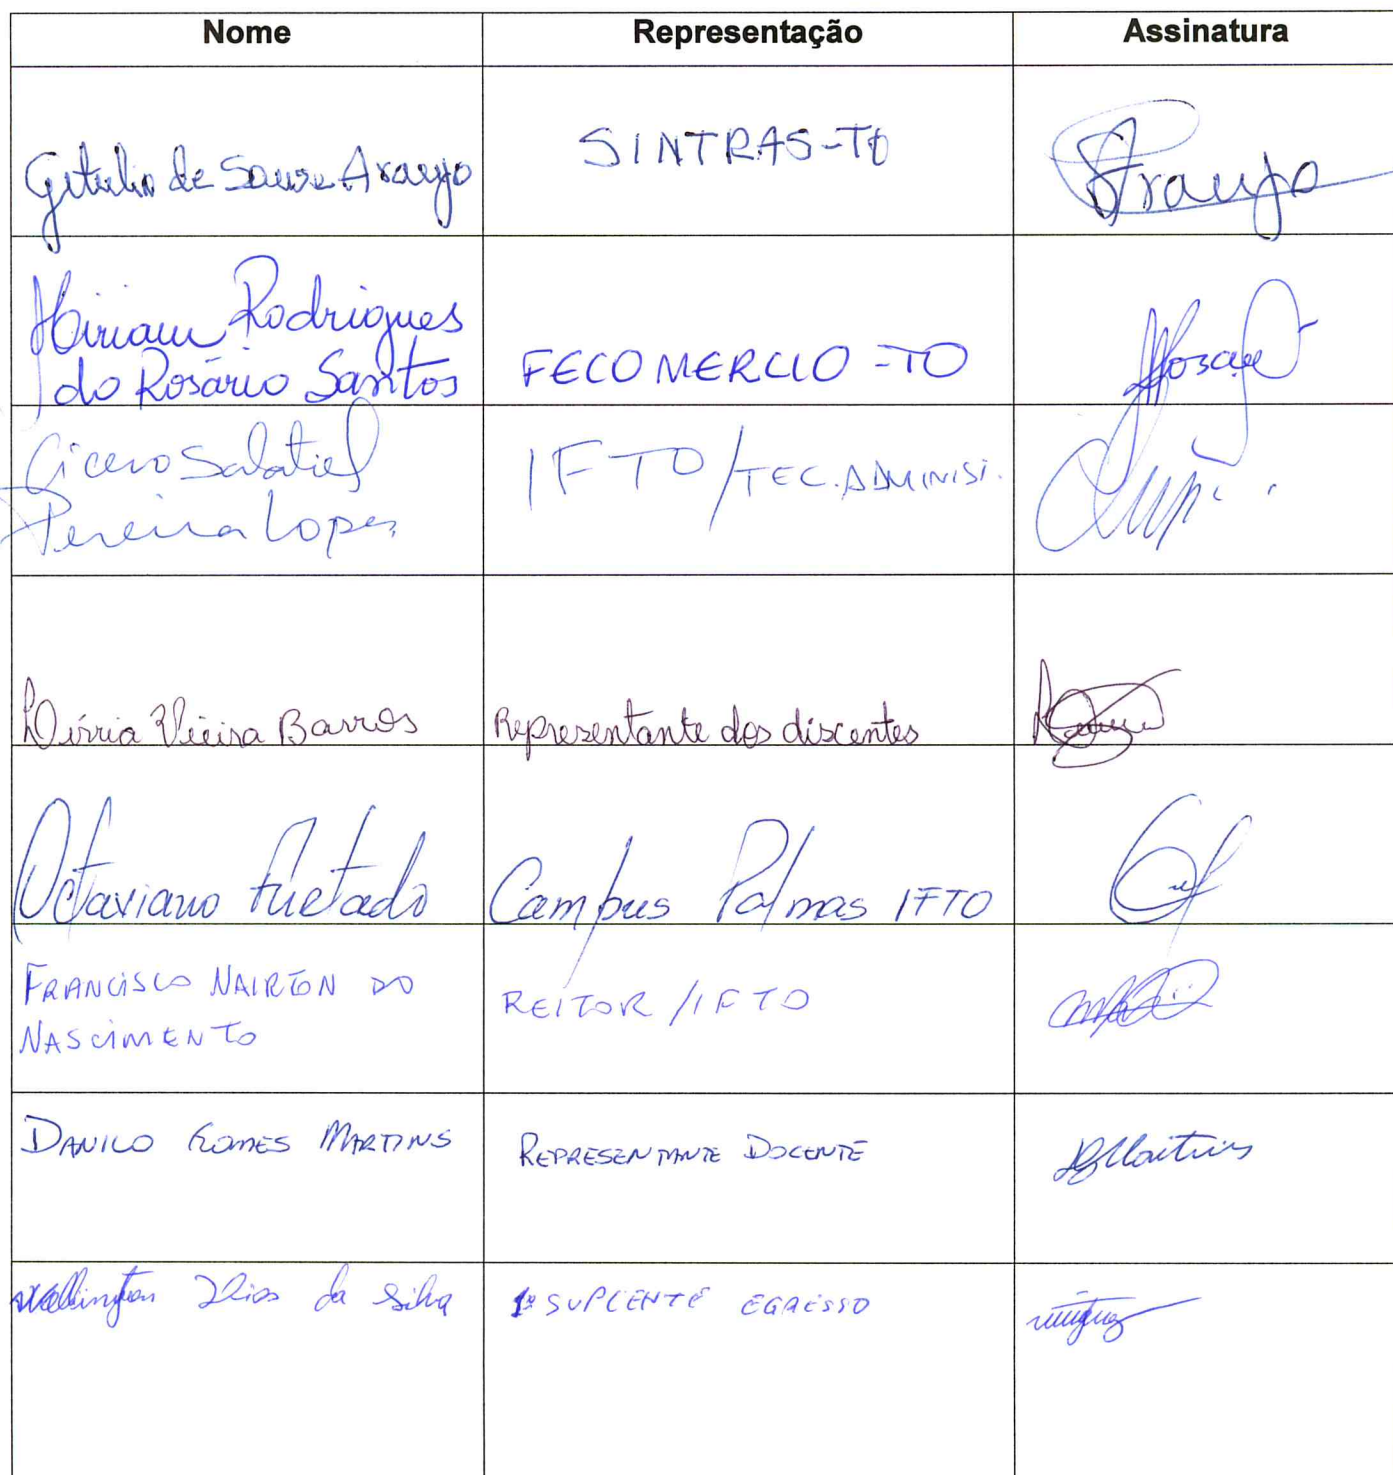 Nome Representação Assinatura
Getulio de Sousa Araujo SINTRAS-TO Araujo
Miriam Rodrigues
do Rosário Santos FECOMERCIO-TO
Cicero Salatiel
Pereira Lopes IFTO/TEC.ADMINIST.
Vieira Barros Representante dos discentes
Octaviano Furtado Campus Palmas IFTO
FRANCISCO NAIRTON DO
NASCIMENTO REITOR/IFTO
DANILO GOMES MARTINS REPRESENTANTE DOCENTE DGMartins
Wellington Dias da Silva 1º SUPLENTE EGRESSO